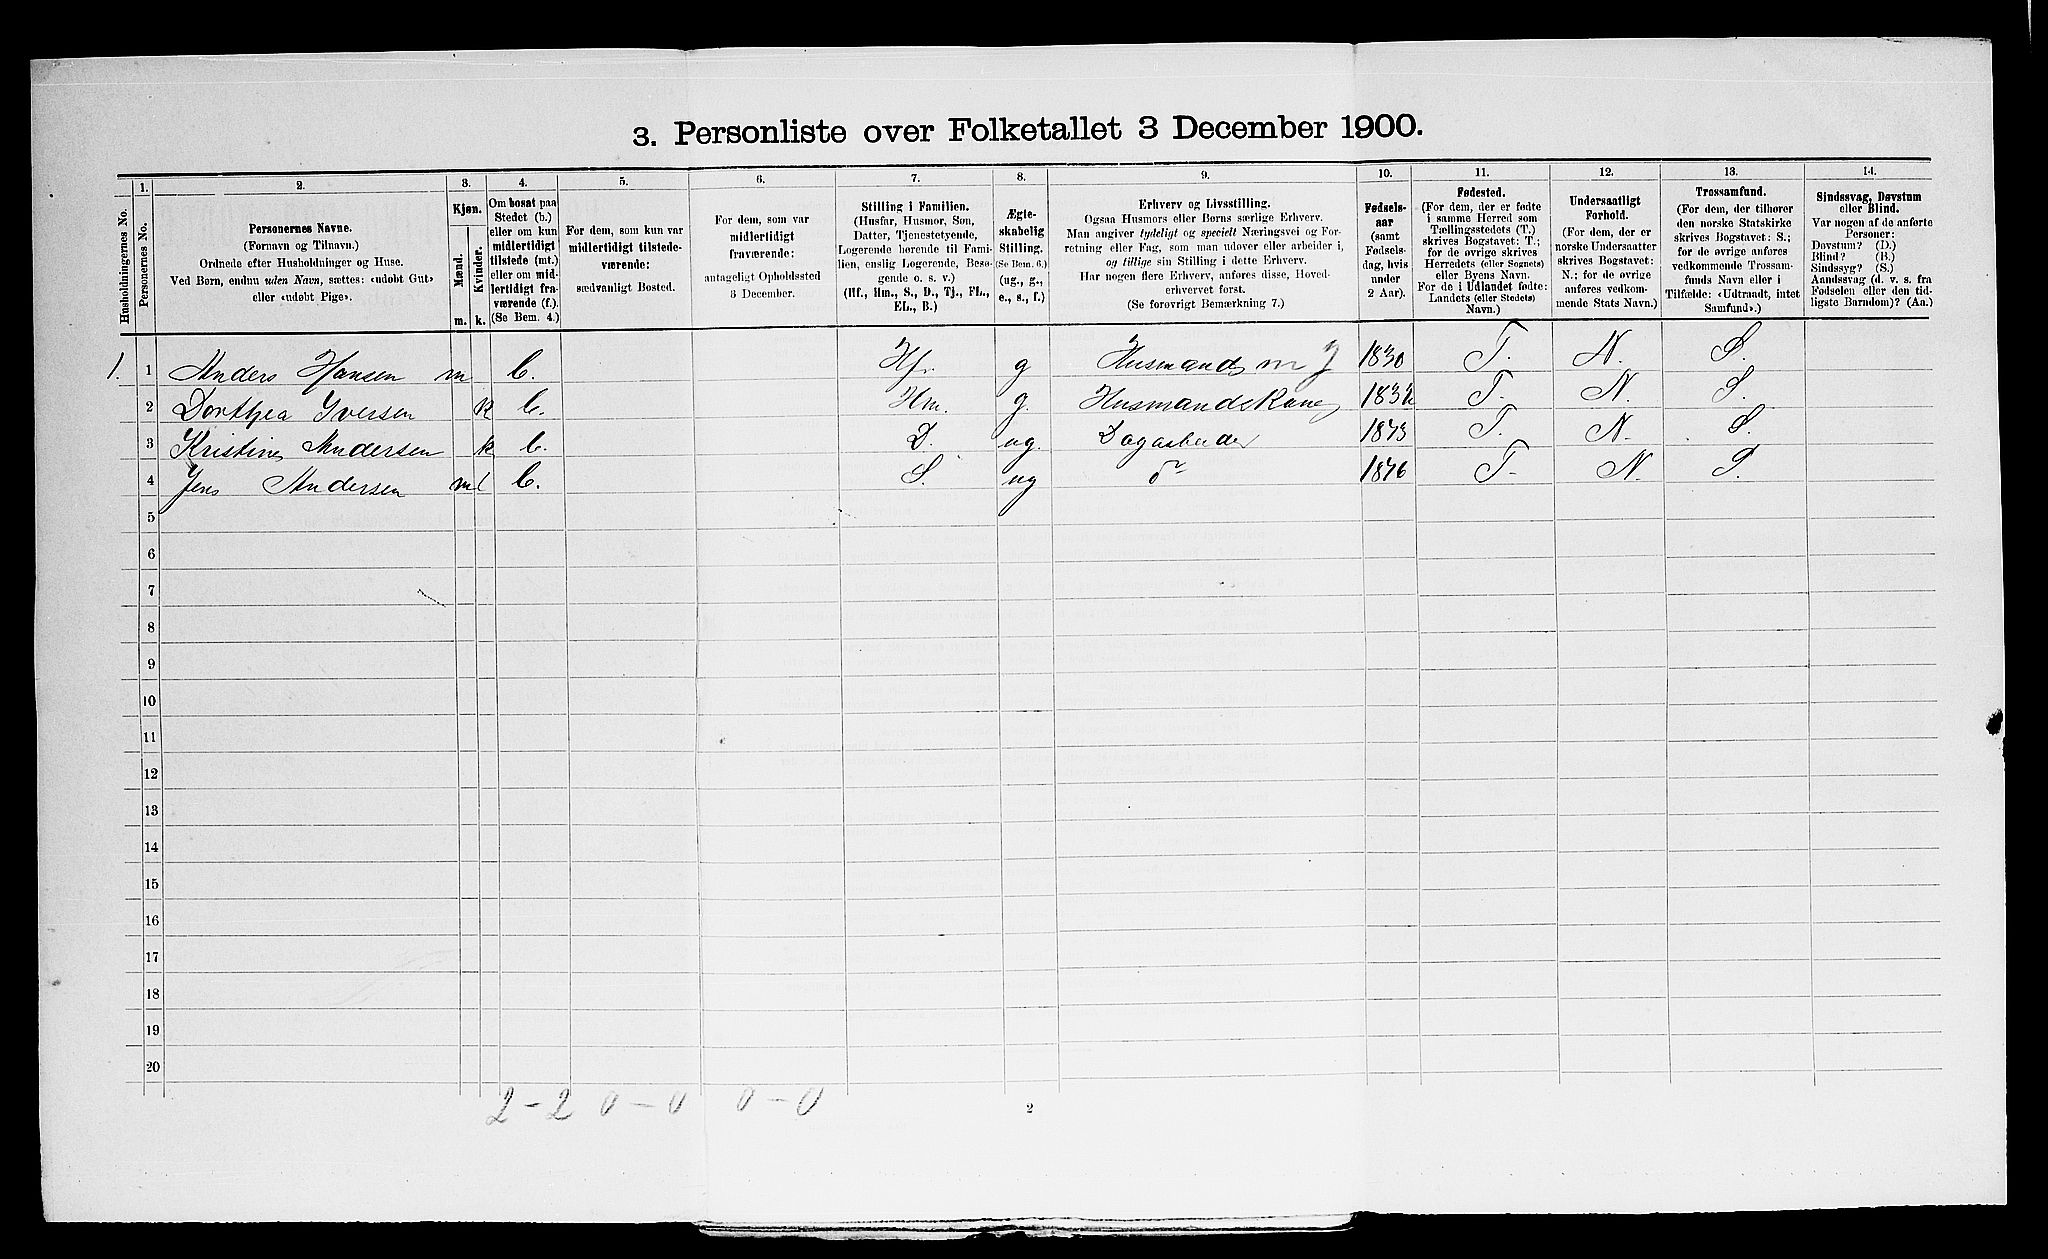 3. Personliste over Folketallet 3 December 1900.
Husholdningernes No.
1.
Personernes No.
2.
Personernes Navne.
(Fornavn og Tilnavn.)
Ordnede efter Husholdninger og Huse.
Ved Børn, endnu uden Navn, sættes: «udøbt Gut»
eller «udøbt Pige».
3.
Kjøn.
Mænd.
Kvinder.
m. k.
4.
Om bosat paa
Stedet (b.)
eller om kun
midlertidigt
tilstede (mt.)
eller om mid-
lertidigt fra-
værende (f.).
(Se Bem. 4.)
5.
For dem, som kun var
midlertidigt tilstede-
værende:
sædvanligt Bosted.
6.
For dem, som var
midlertidigt
fraværende:
antageligt Opholdssted
3 December.
7.
Stilling i Familien.
(Husfar, Husmor, Søn,
Datter, Tjenestetyende,
Logerende hørende til Fami-
lien, enslig Logerende, Besø-
gende o. s. v.)
(Hf., Hm., S., D., Tj., FL.,
EL., B.)
8.
Ægte-
skabelig
Stilling.
(Se Bem. 6.)
(ug., g.,
e., s., f.)
9.
Erhverv og Livsstilling.
Ogsaa Husmors eller Børns særlige Erhverv.
Man angiver tydeligt og specielt Næringsvei og For-
retning eller Fag, som man udøver eller arbeider i,
og tillige sin Stilling i dette Erhverv.
Har nogen flere Erhverv, anføres disse, Hoved-
erhvervet først.
(Se forøvrigt Bemærkning 7.)
10.
Fødsels-
aar
(samt
Fødsels-
dag, hvis
under
2 Aar).
11.
Fødested.
(For dem, der er fødte
i samme Herred som
Tællingsstedets (T.)
skrives Bogstavet: T.;
for de øvrige skrives
Herredets (eller Sognets)
eller Byens Navn.
For de i Udlandet fødte:
Landets (eller Stedets)
Navn.)
12.
Undersaatligt
Forhold.
(For dem, der er
norske Undersaatter
skrives Bogstavet:
N.; for de øvrige
anføres vedkom-
mende Stats Navn.)
13.
Trossamfund.
(For dem, der tilhører
den norske Statskirke
skrives Bogstavet: S.;
for de øvrige anføres
vedkommende Trossam-
funds Navn eller i
Tilfælde: «Udtraadt, intet
Samfund».)
14.
Sindssvag, Døvstum
eller Blind.
Var nogen af de anførte
Personer:
Døvstum? (D.)
Blind? (B.)
Sindssyg? (S.)
Aandssvag (d. v. s. fra
Fødselen eller den tid-
ligste Barndom)? (Aa.)
1. 1 Anders Hansen m b. Hf. g Husmand m J 1830 T. N. S.
2 Dorthea Iversen k b. Hm. g. Husmandskone 1832 T. N. S.
3 Kristine Andersen k b. D. ug. Dagarbeider 1873 T. N. S.
4 Jens Andersen m b. S. ug do 1876 T. N. S.
5
6
7
8
9
10
11
12
13
14
15
16
17
18
19
20
2 - 2 0 - 0 0 - 0
2